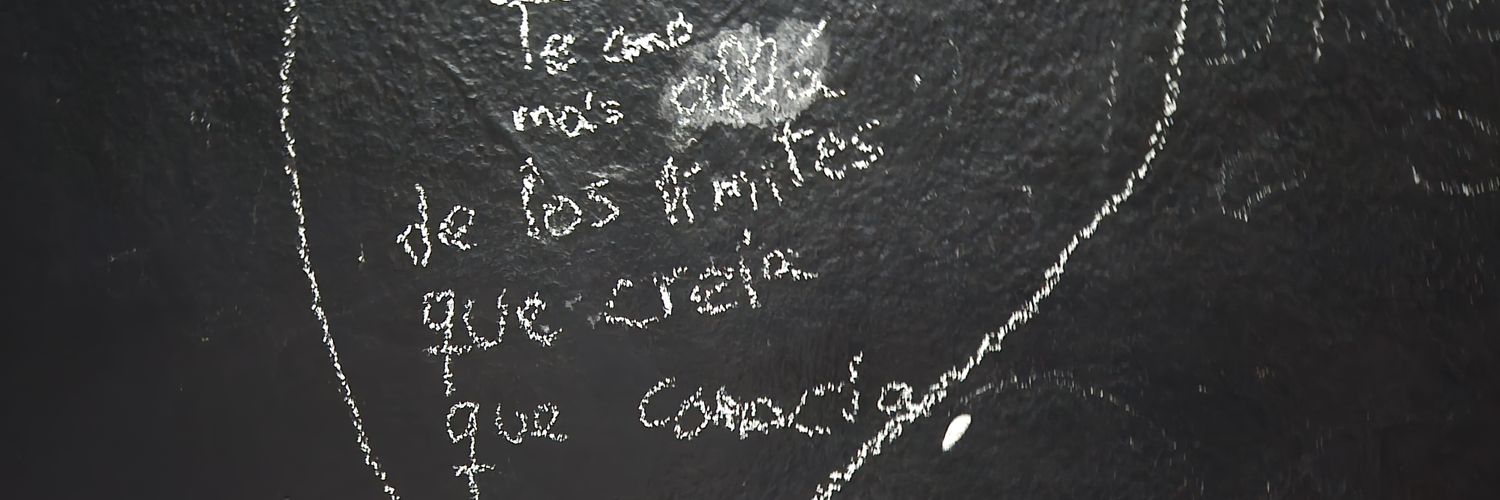 Te amo
más allá
de los límites
que creía
que conocía